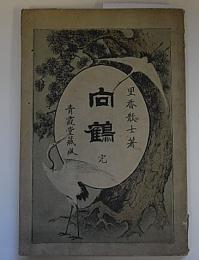 里香散士著
向鶴 完
青霞堂藏版